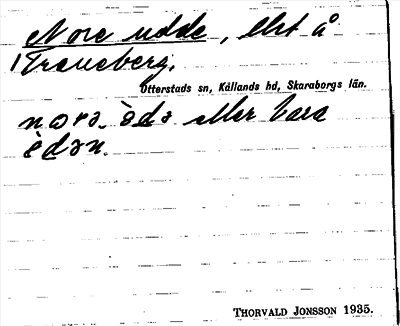 Nore udde, Ehst å
Traneberg.
Otterstads sn, Kållands hd, Skaraborgs län.
norə. èdə eller bara
èdən.
THORVALD JONSSON 1935.